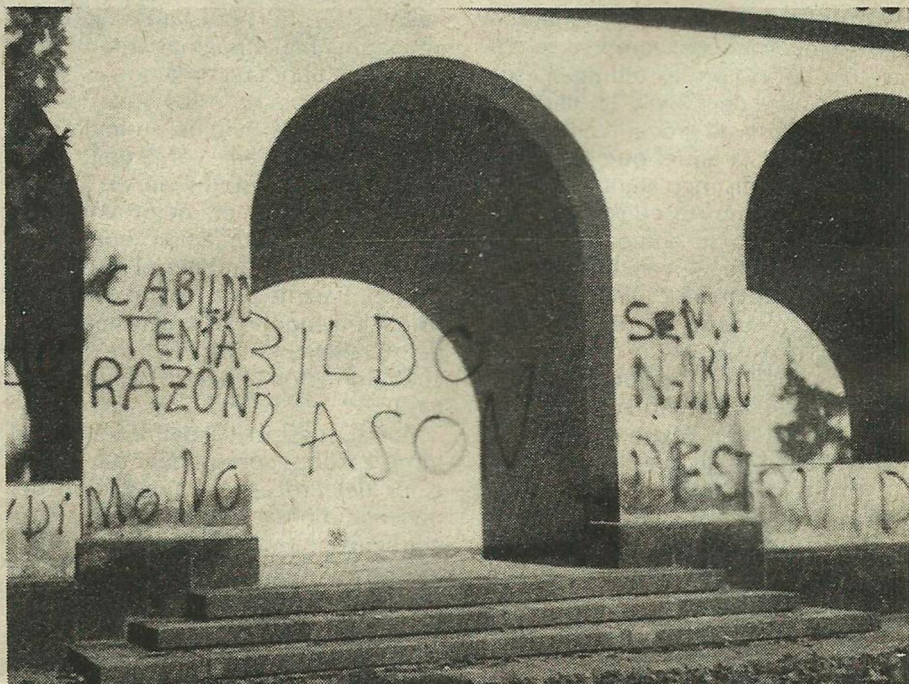 CABILDO
TENIA
RAZON
BILDO
RASON
DIMO NO
SEMI
NARIO